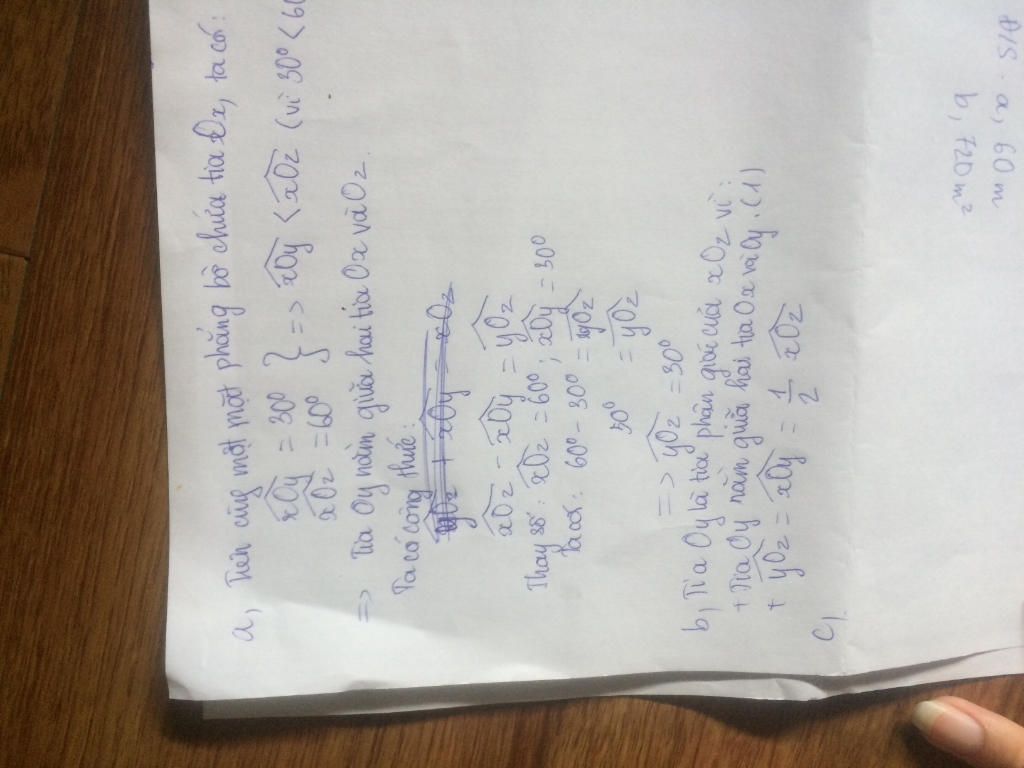 a, Trên cùng một mặt phẳng bờ chứa tia Ox, ta có:
xOy = 30°
xOz = 60° } => xOy < xOz (vì 30° < 60
=> Tia Oy nằm giữa hai tia Ox và Oz.
Ta có công thức:
xOz - xOy = yOz
Thay số: xOz = 60°; xOy = 30°
Ta có: 60° - 30° = yOz
30° = yOz
=> yOz = 30°
b, Tia Oy là tia phân giác của xOz vì:
+ Tia Oy nằm giữa hai tia Ox và Oy. (1)
+ yOz = xOy = 1/2 xOz
c,
Đ/S: a, 60m
b, 720m²